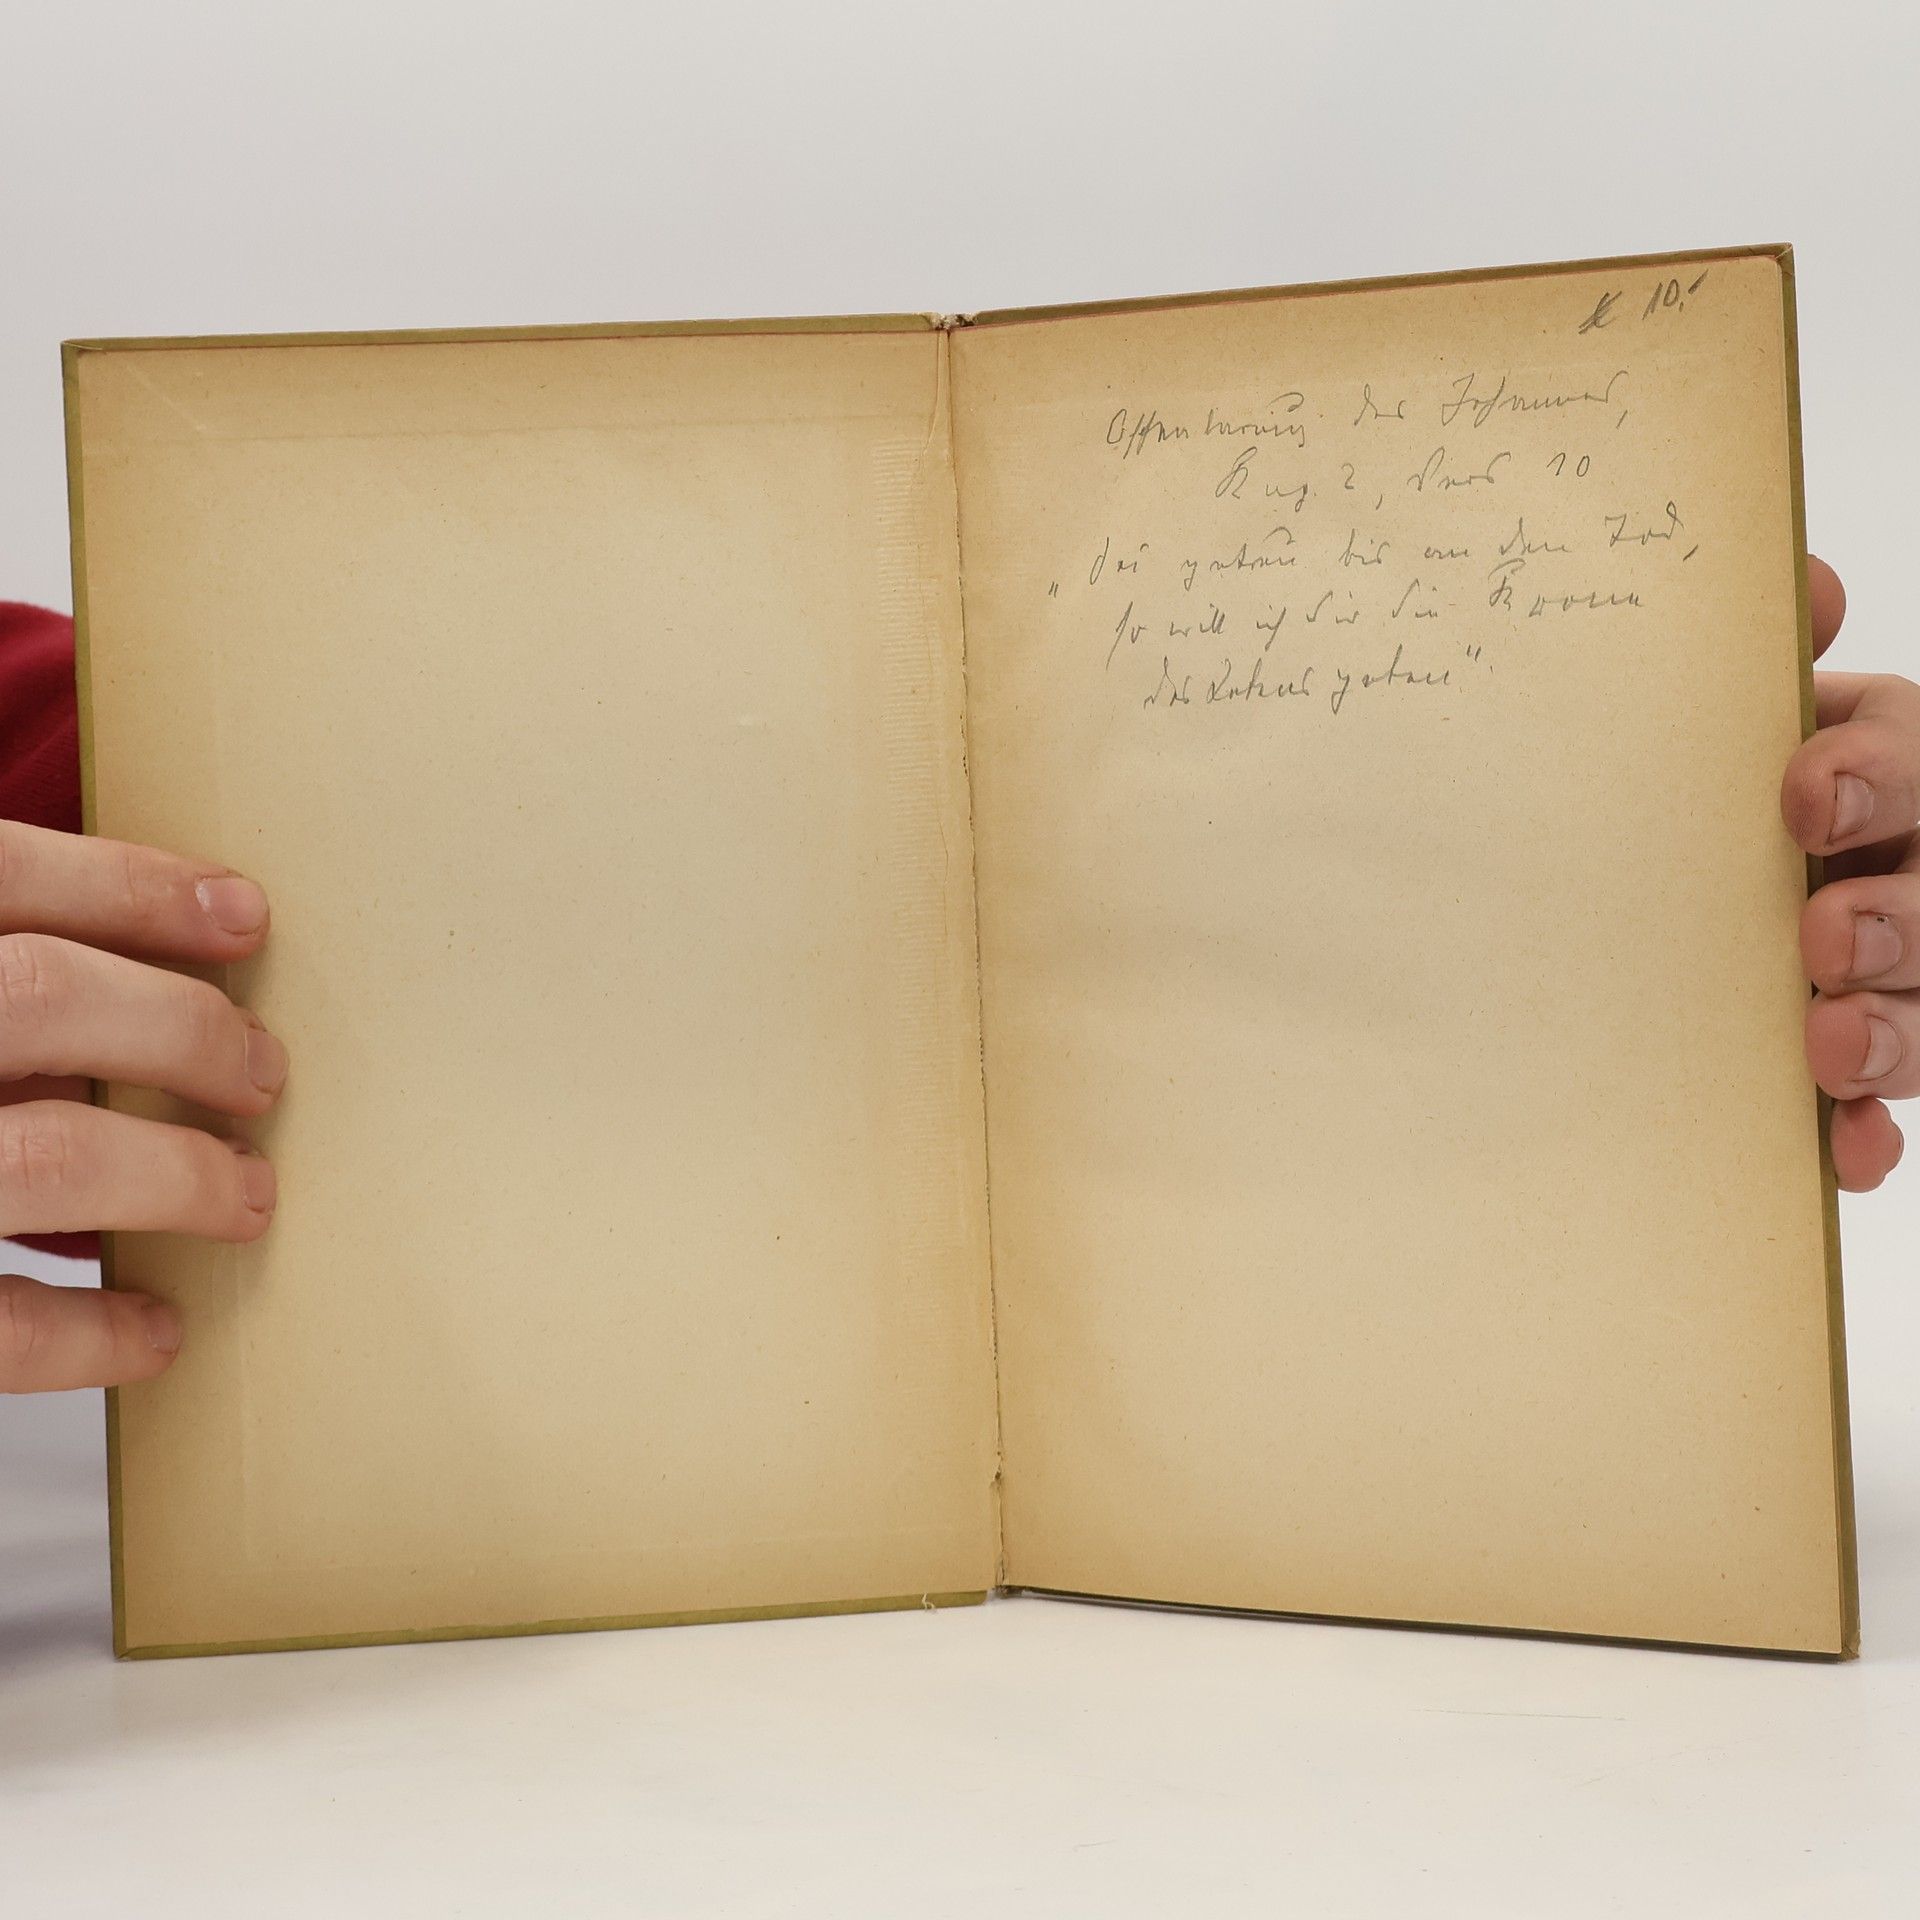 10.-
Offenbarung des Johannes,
Kap. 2, Vers 10
"Sei getreu bis an den Tod,
so will ich dir die Krone
des Lebens geben".